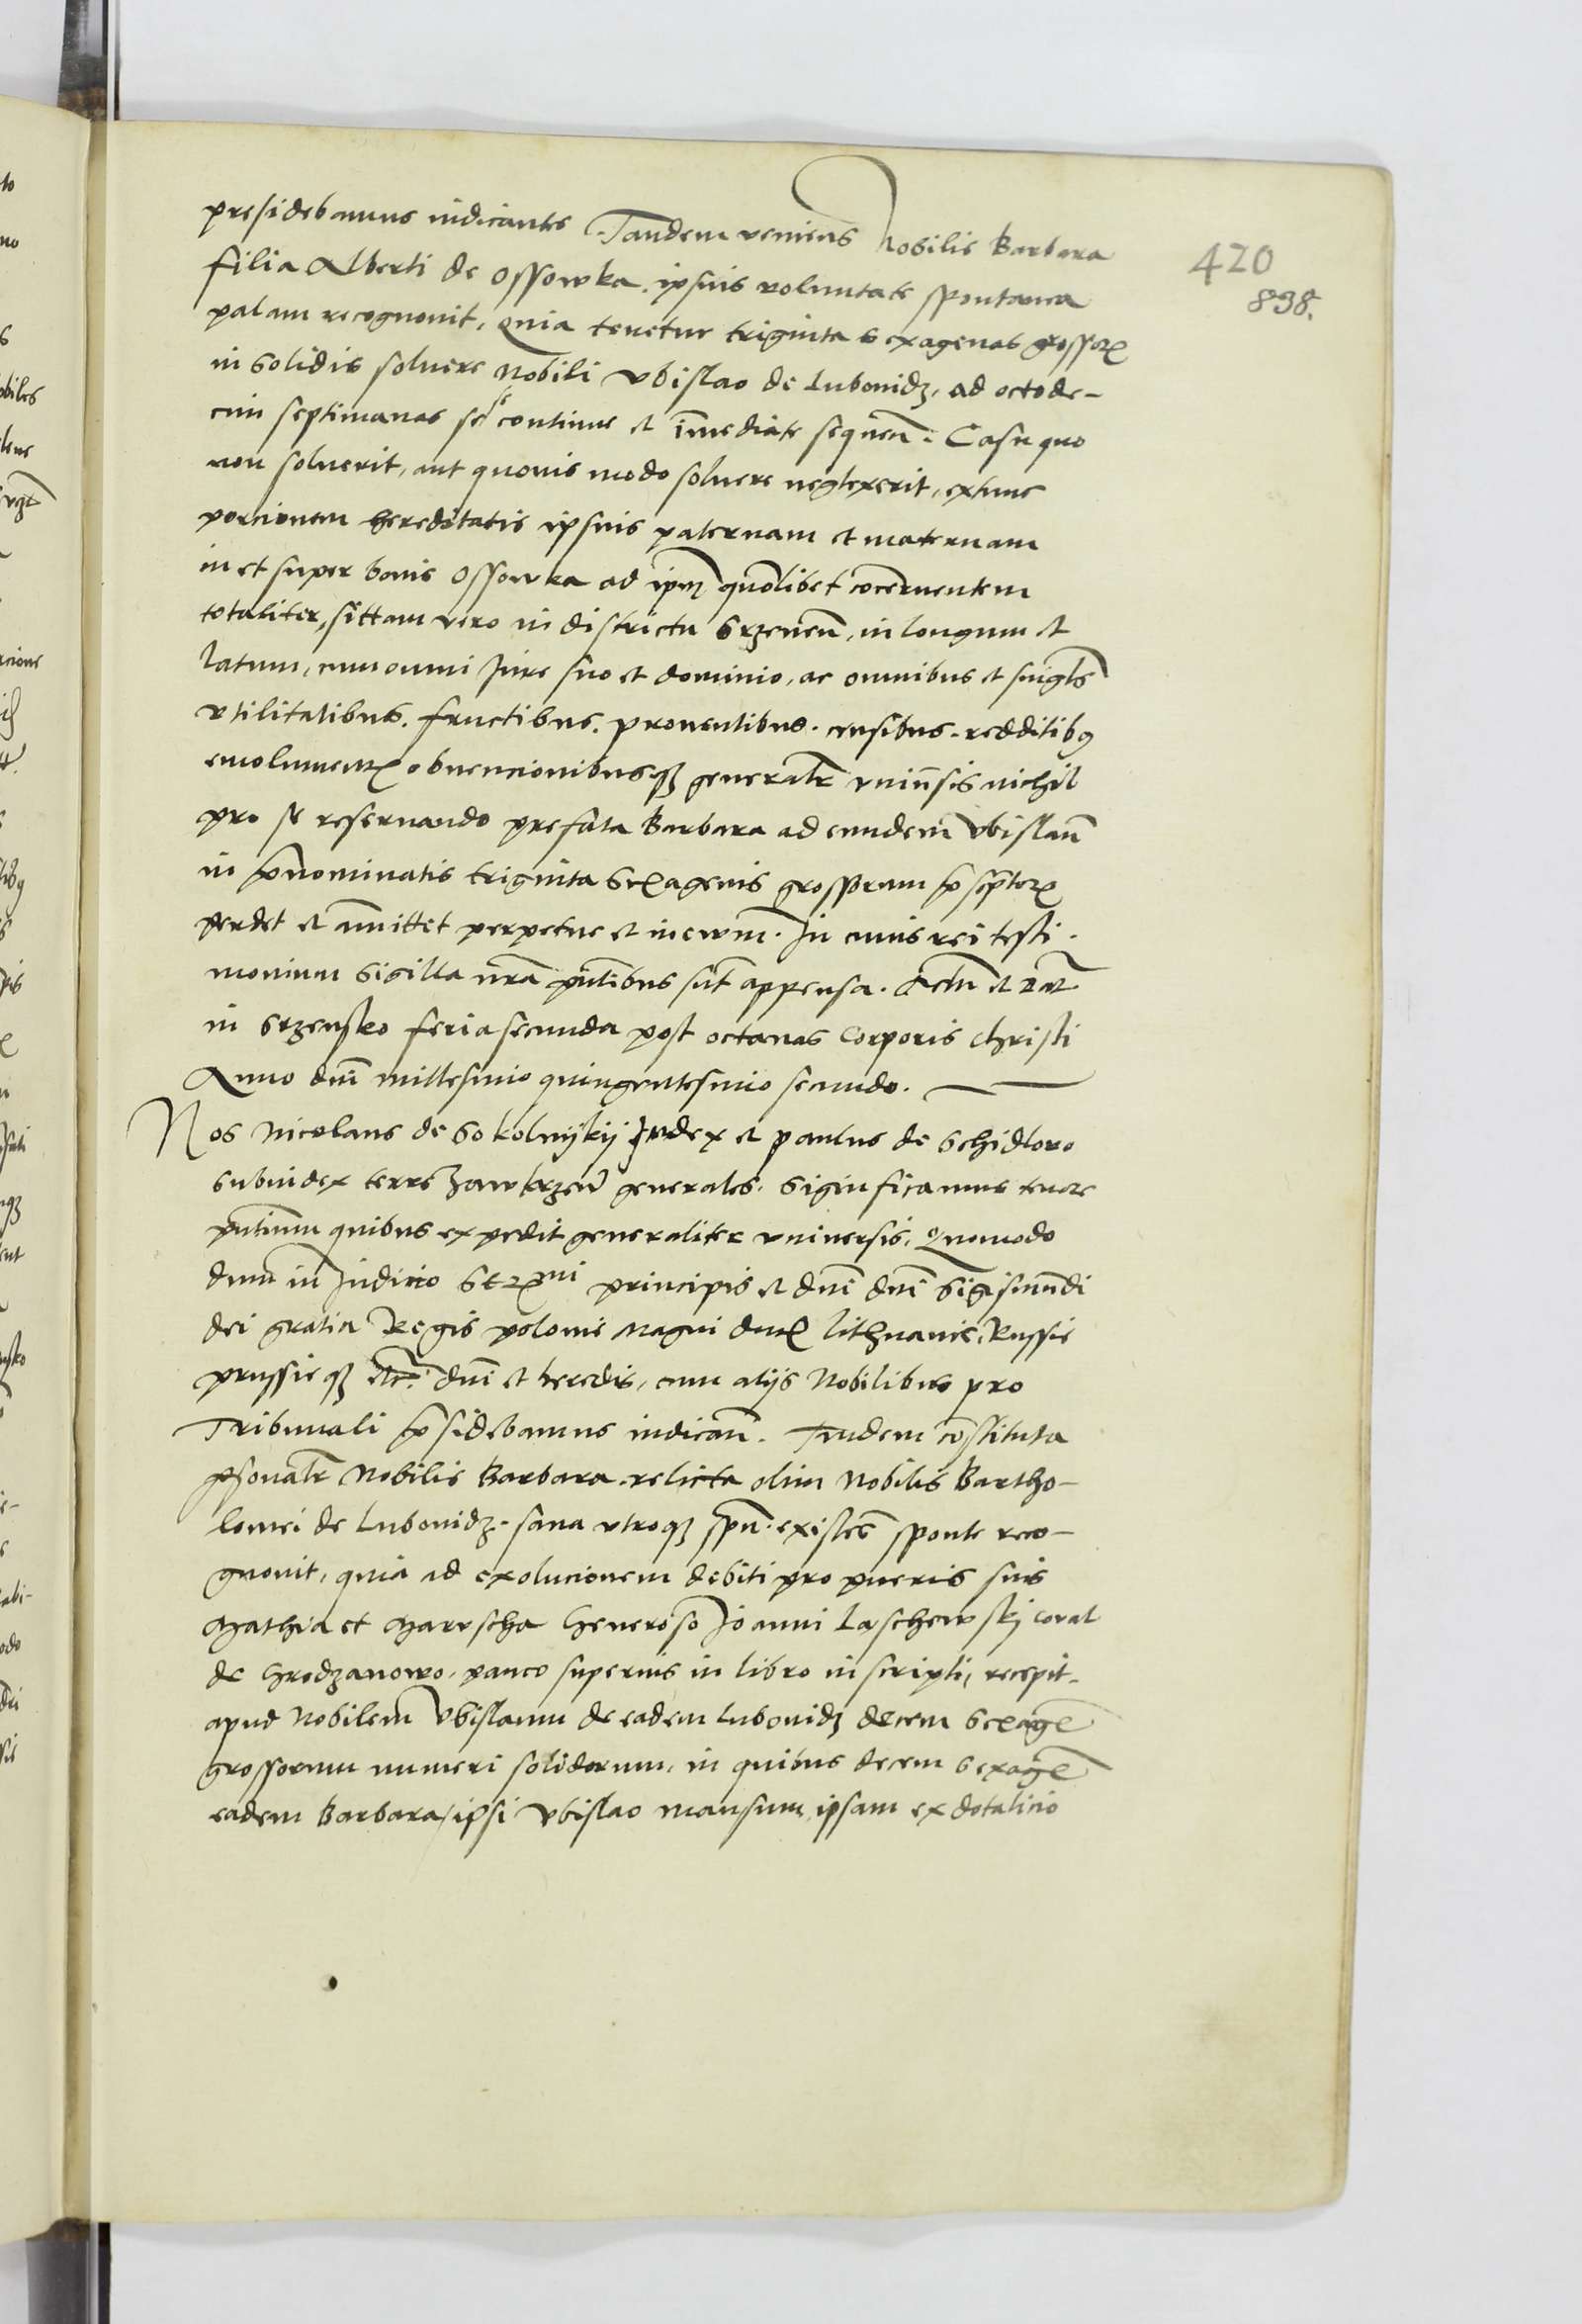 presidebamus iudicantes Tandem veniens Nobilis Barbara
filia Alberti de Ossowka. ipsius voluntate spontanea
palam recognouit, Quia tenetur triginta sexagenas grossorꝝ
in solidis soluere Nobili vbislao de Lubouidz, ad octode-
cim septimanas se continue et īmediate sequeñ. Casu quo
non soluerit, aut quouis modo soluere neglexerit, extunc
porcionem hereditatis ipsius paternam et maternam
in et super bonis Ossowka ad ipm̄ quōlibet cōcernentem
totaliter, sittam vero in districtu Srzeneñ, in longum et
latum, cum omni Jure suo et dominio, ac omnibus et singl̄s
vtilitatibus. fructibus. prouentibus. censibus. redditibꝰ
emolumentꝝ obuencionibusqꝫ generalr̄ vniūsis nichil
pro se reseruando prefata Barbara ad eundem vbislaū
in p̄nominatis triginta Sexagenis grossorum p̄scp̄torꝝ
perdet et am̄ittet perpetue et in ewm̄. In cuius rei testi-
monium Sigilla nr̄a pn̄tibus sūt appensa. Actū et Dat̄
in Srzensko feria secunda post octauas Corporis Christi
Anno dn̄i millesimo quingentesimo secundo.
Nos Nicolaus de Sokolnijkij Judex et paulus de Schidlowo
Subiudex terre Zawkrzeñ generales. Significamus tenore
pn̄tium quibus expedit generaliter vniuersis, Quomodo
dum in Judicio Serꝫmi principis et dn̄i dn̄i Sigismūdi
dei gratia Regis polonie Magni ducꝫ Lithuanie, Russie
prussieqꝫ etc. dn̄i et heredis, cum alijs Nobilibus pro
Tribunali p̄sidebamus iudicañ. Tandem cōstituta
ꝑsonalr̄ Nobilis Barbara. relicta olim Nobilis Bartho-
lomei de Lubouidz. sana vtroqꝫ spū. existēs sponte reco-
gnouit, quia ad exolucionem debiti pro pueris suis
Mathia et Maruscha Generoso Joanni Laschewskj
de Grodzanowo, pauco superius in libro inscripti, recepit.
apud Nobilem Vbislaum de eadem Lubouidz decem Sexagē
grossorum numeri solidorum, in quibus decem sexagē
eadem Barbara, ipsi vbislao mansum, ipsam ex dotalicio
420
838.